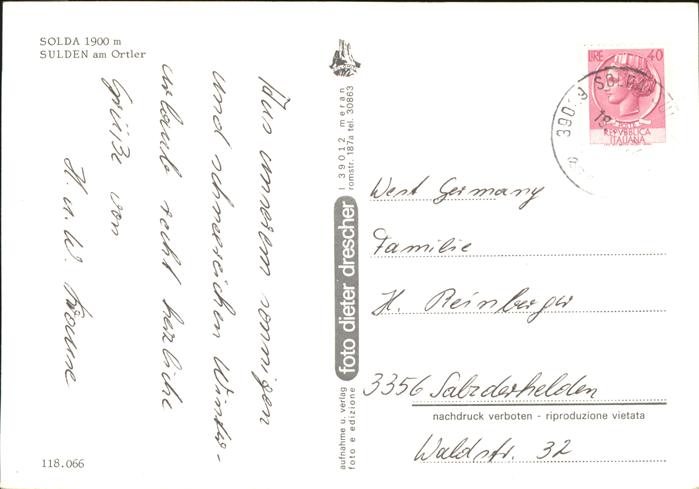 SOLDA 1900 m
SULDEN am Ortler
Aus unserem sonnigen
und schneereichen Winter-
urlaub recht herzliche
Grüße von
H. u. W. Krause
118.066
I 39012 meran
romstr. 187a tel. 30863
foto dieter drescher
aufnahme u. verlag
foto e edizione
LIRE 40
POSTE
REPVBBLICA
ITALIANA
39029 SOLDA
West Germany
Familie
H. Reinberger
3356 Salzderhelden
nachdruck verboten - riproduzione vietata
Waldstr. 32